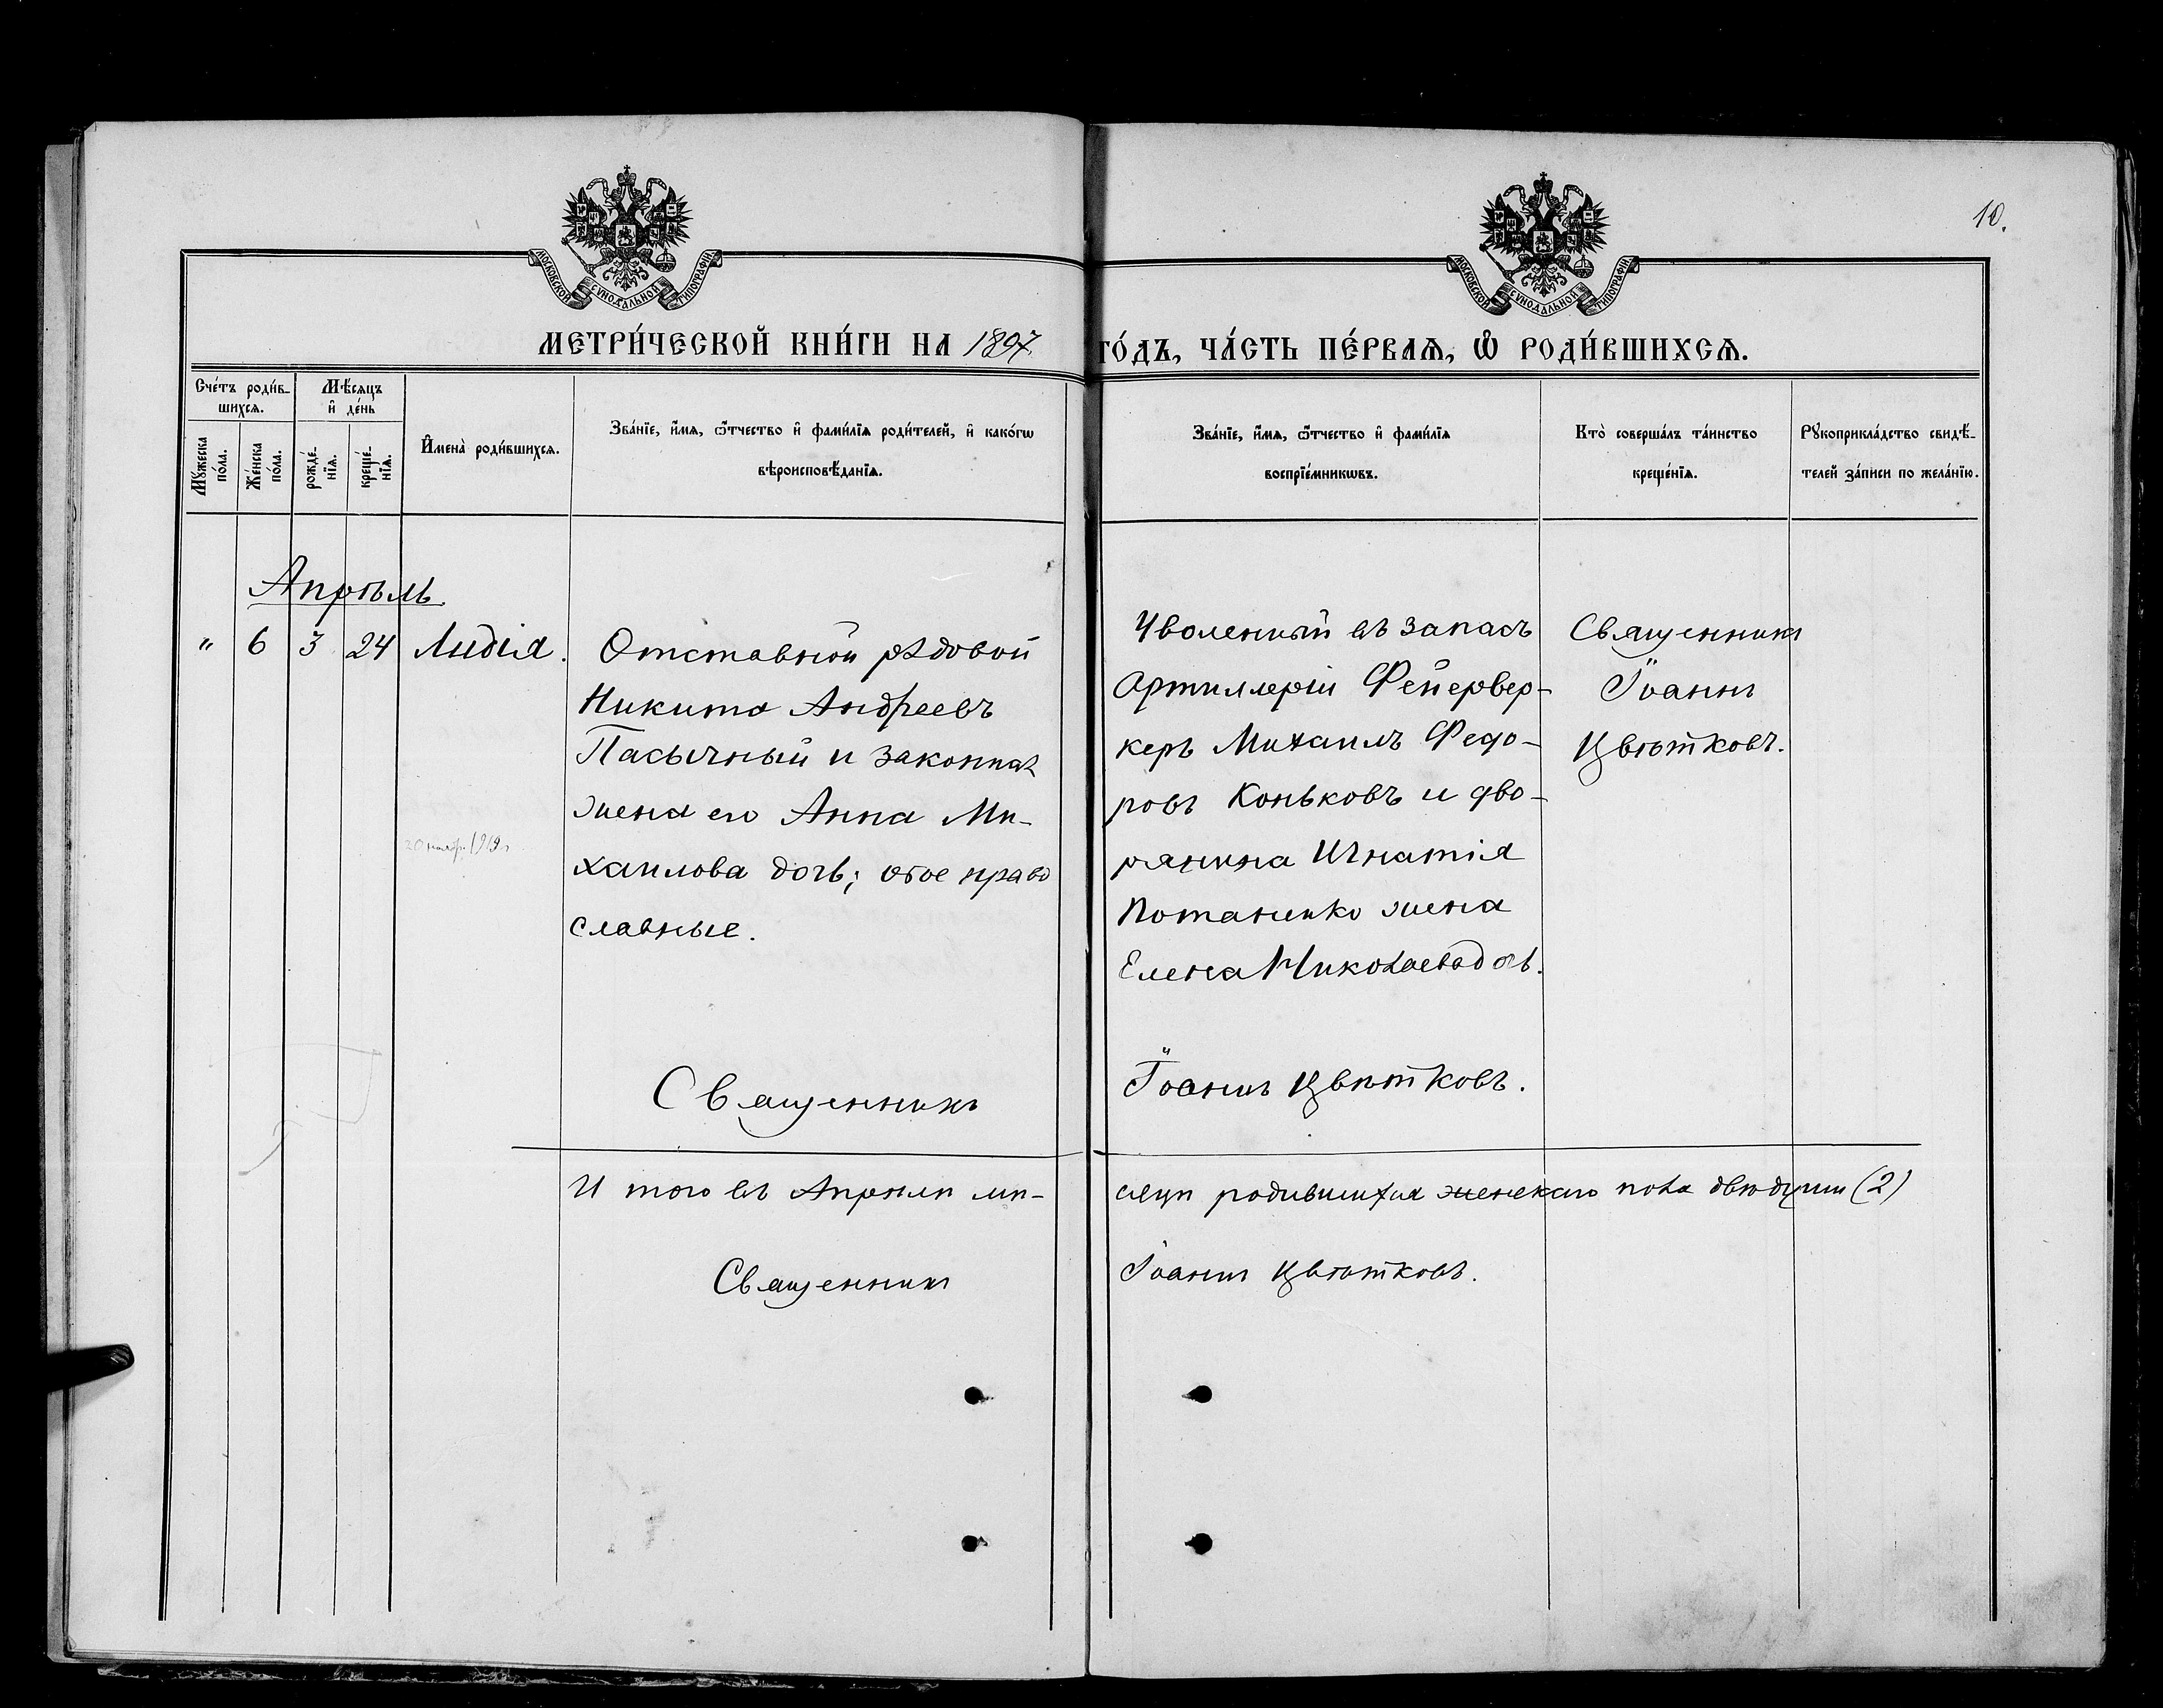 10.
МОСКОВСКОЙ СѴНОДАЛЬНОЙ ТИПОГРАФІИ
МОСКОВСКОЙ СѴНОДАЛЬНОЙ ТИПОГРАФІИ
МЕТРИ́ЧЕСКОЙ КНИ́ГИ НА 1897 ГО́ДЪ, ЧА́СТЬ ПЕ́РВАѦ, Ѽ РОДИ́ВШИХСѦ.
Сче́тъ роди́в-
шихсѧ.
Мꙋжеска
по́ла.
Же́нска
по́ла.
Мѣ́сяцъ
и҆ де́нь
рожде́-
нїѧ.
креще́-
нїѧ.
И҆мена̀ роди́вшихсѧ.
Зва́нїе, и҆́мѧ, ѻ҆́тчество и҆ фами́лїѧ роди́телей, и҆ како́гѡ
вѣроисповѣ́данїѧ.
Зва́нїе, и҆́мѧ, ѻ҆́тчество и҆ фами́лїѧ
воспрїе́мникѡвъ.
Кто̀ соверша́лъ та́инство
креще́нїѧ.
Рꙋкоприкла́дство свидѣ́-
телей за́писи по жела́нїю.
Апрѣль.
" 6 3 24 Лидія.
Отставной рядовой
Никита Андреевъ
Пасычный и законная
жена его Анна Ми-
хаилова дочь; обое право
славные.
Уволеный въ запасъ
Артиллеріи Фейервер-
керъ Михаилъ Федо-
ровъ Коньковъ и дво-
рянина Игнатія
Потанинко жена
Елена Николаева дочь.
Священникъ
Іоаннъ
Цвѣтковъ.
Священникъ Іоаннъ Цвѣтковъ.
И того въ Апрѣли мѣ- сяцѣ родившихся женскаго пола двѣ души (2)
Священникъ Іоаннъ Цвѣтковъ.